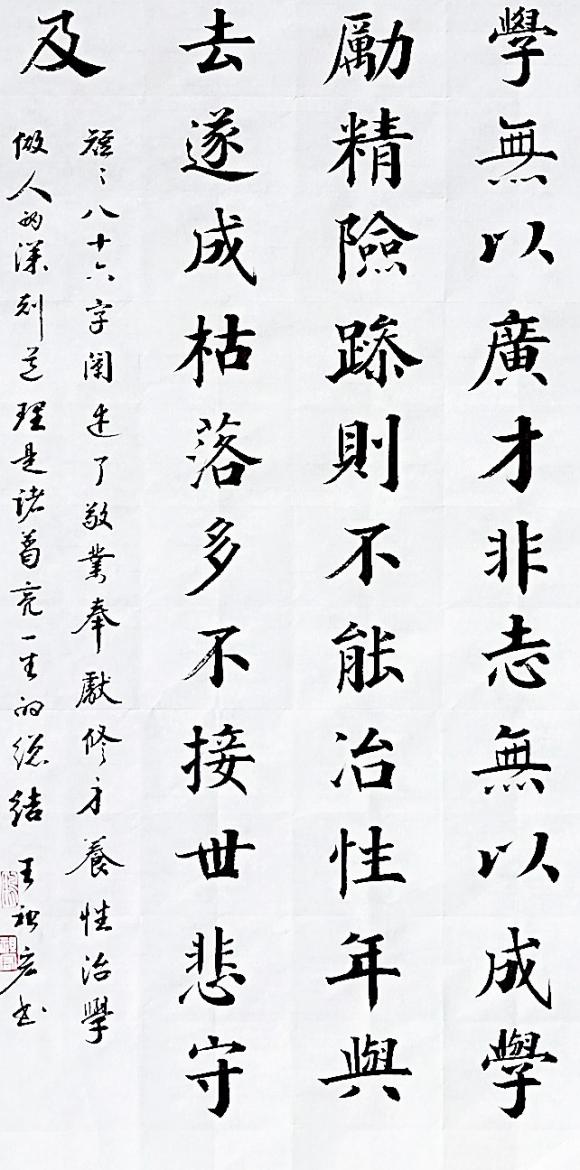 學無以廣才非志無以成學
勵精險躁則不能冶性年與
去遂成枯落多不接世悲守
及
短〻八十六字阐述了敬業奉獻修身養性治學
做人的深刻道理是诸葛亮一生的总结 王宏书